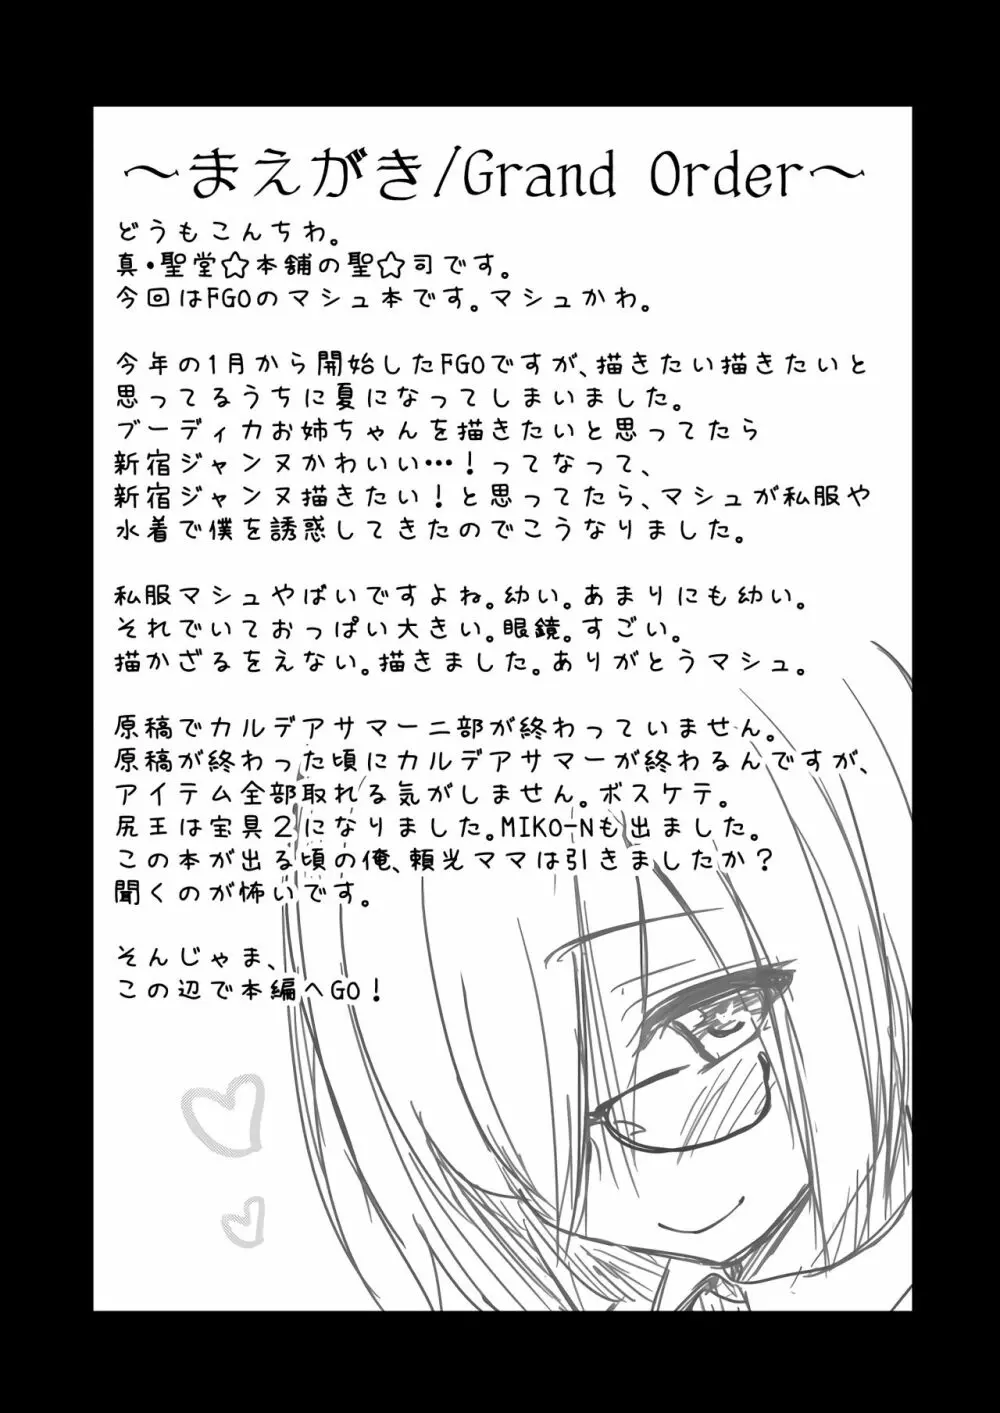 ～まえがき/Grand Order～
どうもこんちわ。
真・聖堂☆本舗の聖☆司です。
今回はFGOのマシュ本です。マシュかわ。
今年の1月から開始したFGOですが、描きたい描きたいと
思ってるうちに夏になってしまいました。
ブーディカお姉ちゃんを描きたいと思ってたら
新宿ジャンヌかわいい…！ってなって、
新宿ジャンヌ描きたい！と思ってたら、マシュが私服や
水着で僕を誘惑してきたのでこうなりました。
私服マシュやばいですよね。幼い。あまりにも幼い。
それでいておっぱい大きい。眼鏡。すごい。
描かざるをえない。描きました。ありがとうマシュ。
原稿でカルデアサマー二部が終わっていません。
原稿が終わった頃にカルデアサマーが終わるんですが、
アイテム全部取れる気がしません。ボスケテ。
尻王は宝具２になりました。MIKO-Nも出ました。
この本が出る頃の俺、頼光ママは引きましたか？
聞くのが怖いです。
そんじゃま、
この辺で本編へGO！